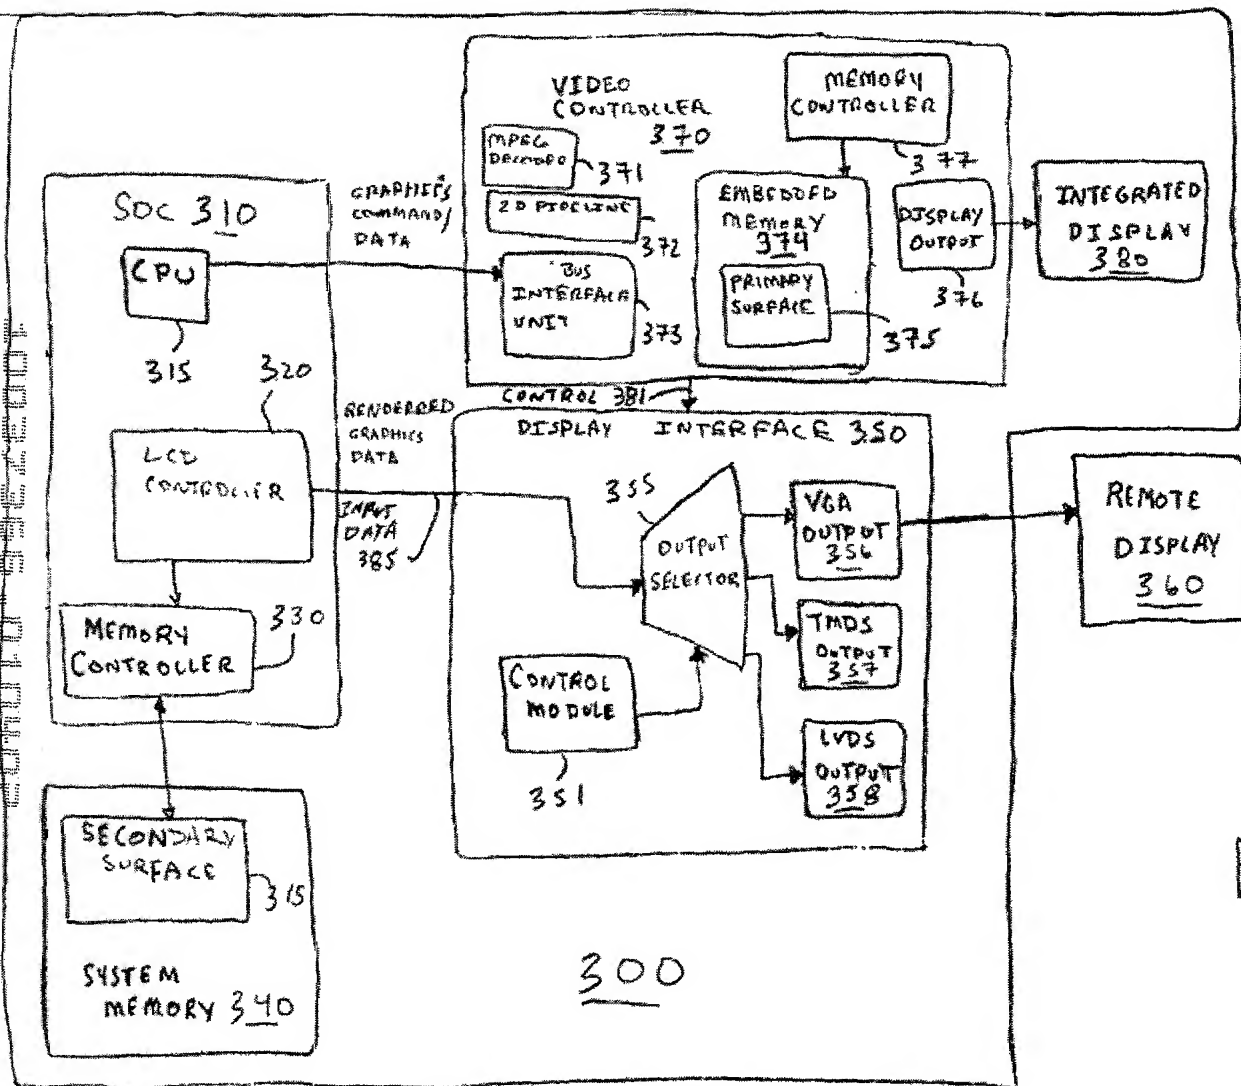 VIDEO
CONTROLLER
370
MEMORY
CONTROLLER
377
MPEG
DECODER
371
2D PIPELINE
372
BUS
INTERFACE
UNIT
373
EMBEDDED
MEMORY
374
PRIMARY
SURFACE
375
DISPLAY
OUTPUT
376
INTEGRATED
DISPLAY
380
SOC 310
CPU
315
GRAPHICS
COMMAND/
DATA
320
LCD
CONTROLLER
RENDERED
GRAPHICS
DATA
INPUT
DATA
385
MEMORY
CONTROLLER
330
CONTROL 381
DISPLAY INTERFACE 350
355
OUTPUT
SELECTOR
VGA
OUTPUT
356
TMDS
OUTPUT
357
LVDS
OUTPUT
358
CONTROL
MODULE
351
REMOTE
DISPLAY
360
SECONDARY
SURFACE
315
SYSTEM
MEMORY 340
300